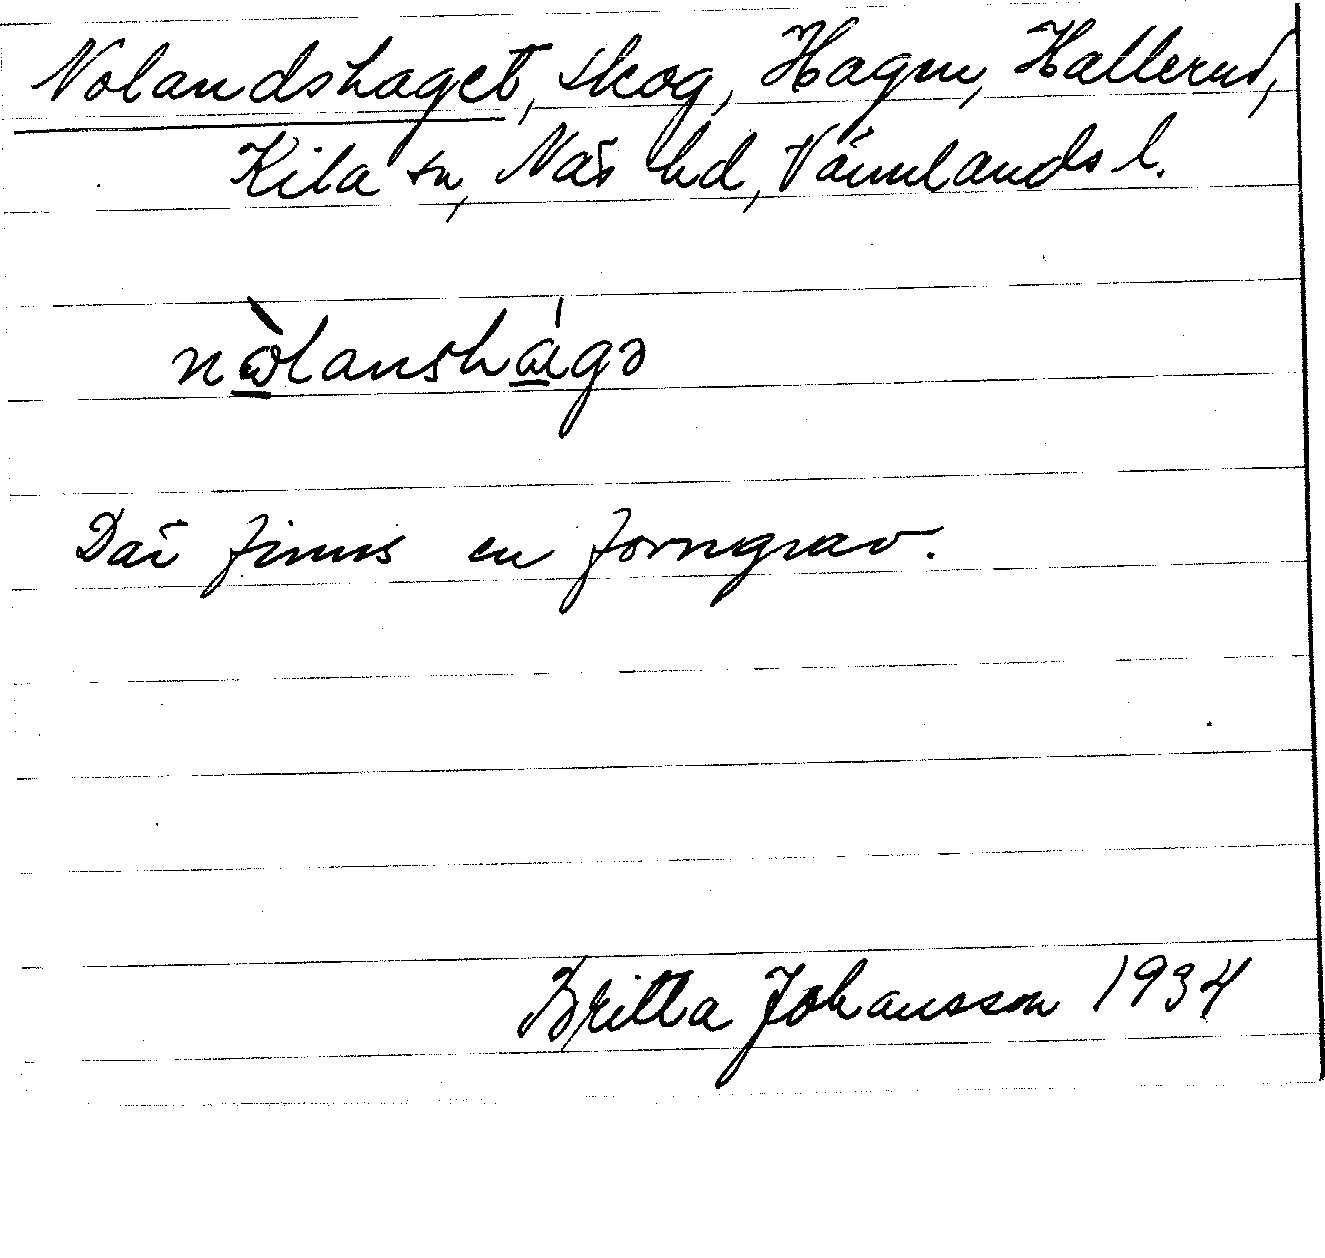 Nolandshaget, skog, Hagen, Hallerud,
Kila sn, Näs hd, Värmlands l.
nὼlanshɑ́gə
Där finns en forngrav.
Britta Johansson 1934